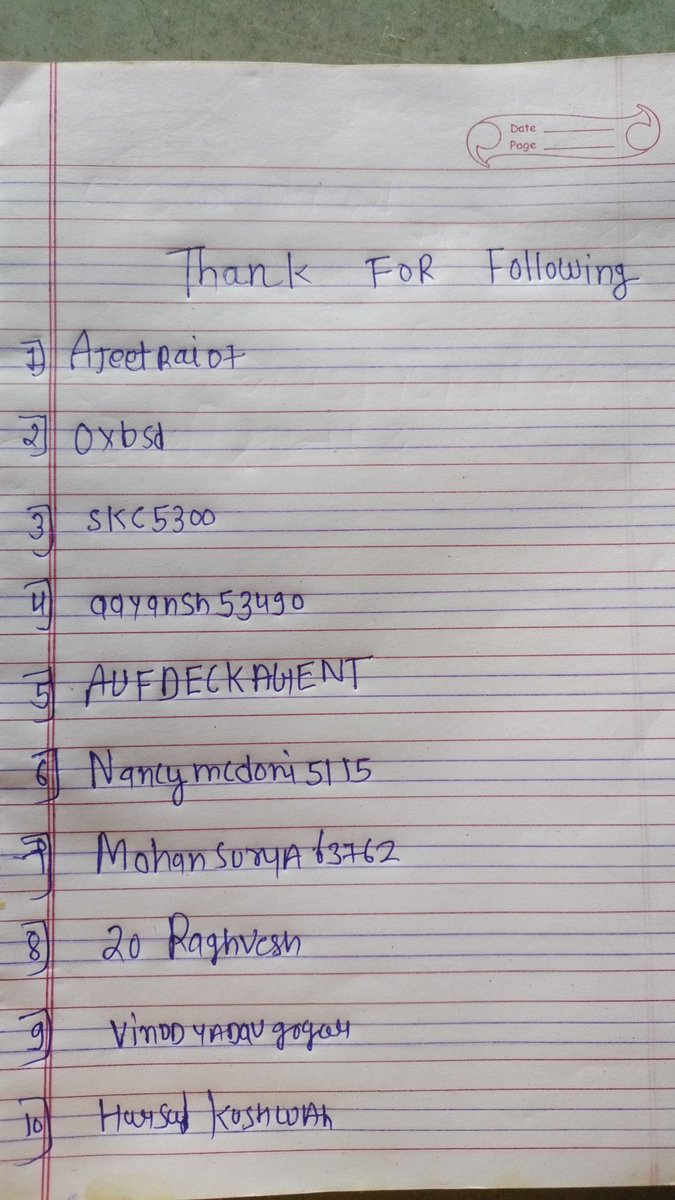 Date
Page
Thank FOR Following
1) AJeetRai07
2) 0xbsd
3) SKC5300
4) aayansh53490
5) AUFDECKAGENT
6) Nancymcdoni5115
7) MohansuryA63762
8) 20 Raghvesh
9) VinODYADAV
10) KOSHWAh